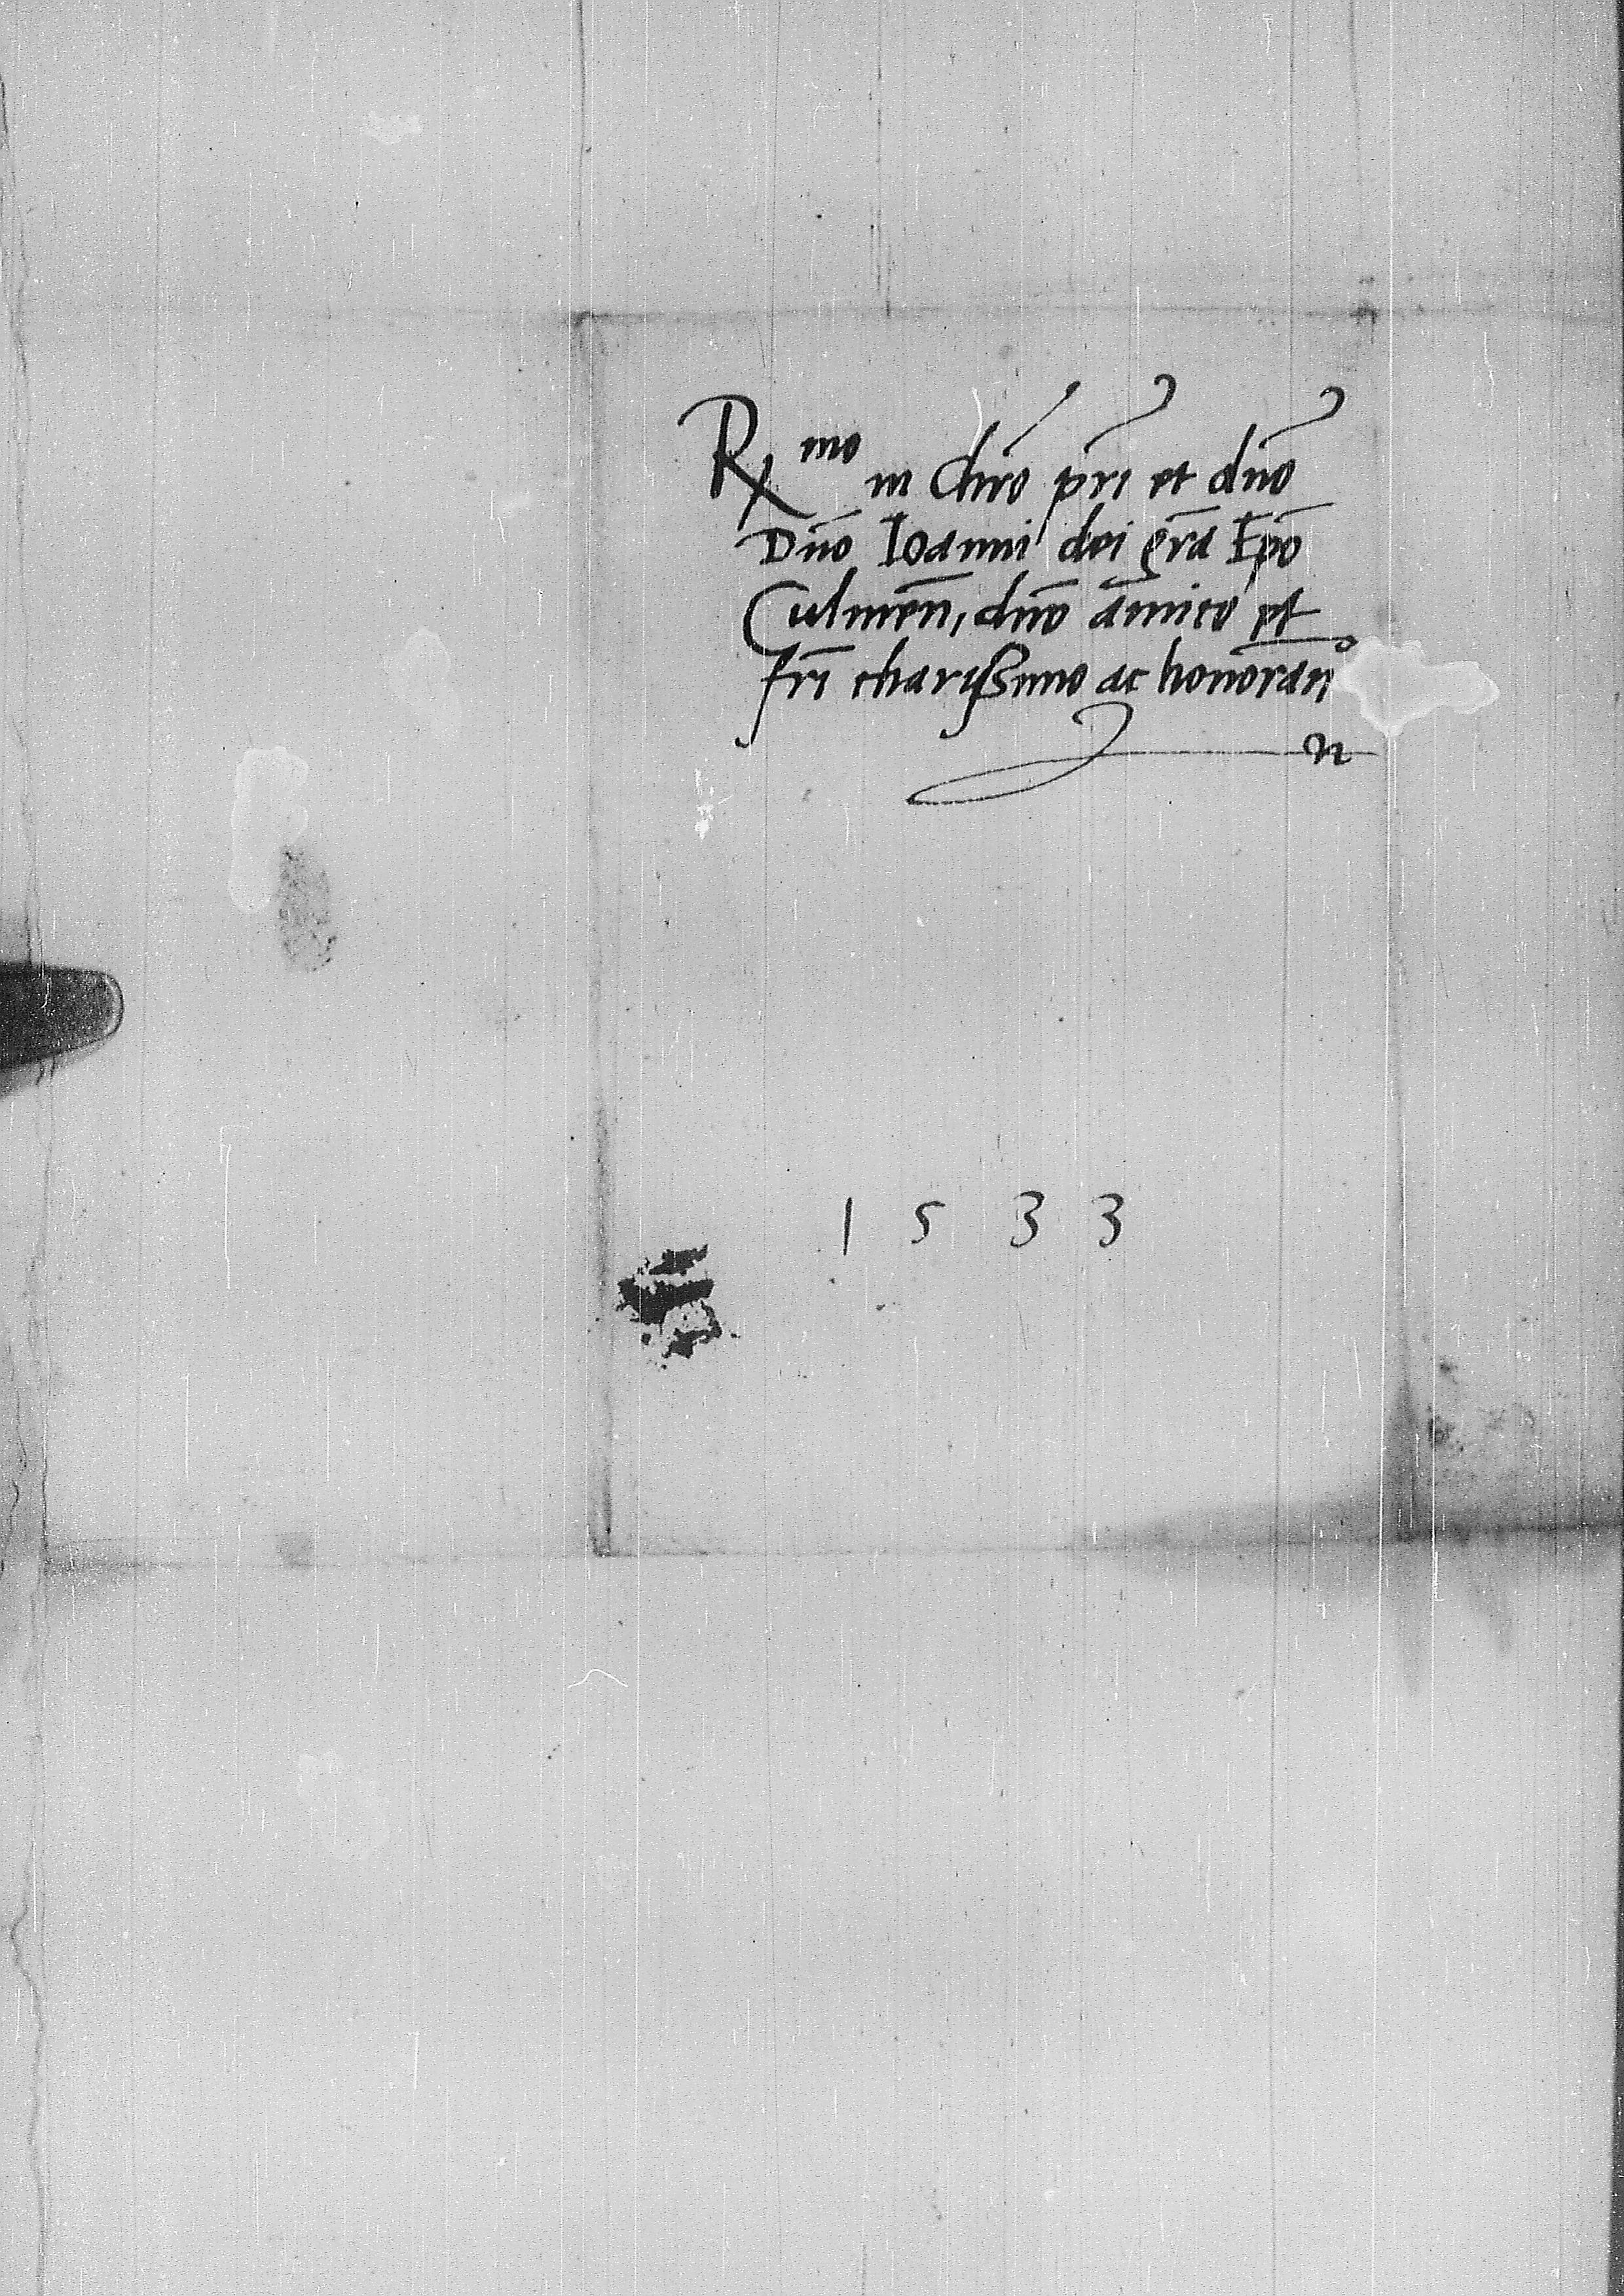 Rx mo in Chro̅ pri̅ et dn̅o
Dn̅o Ioanni dei gr̅a Epo̅
Culmen̅, dn̅o amico et
fri̅ charissimo ac honoran̅
1533